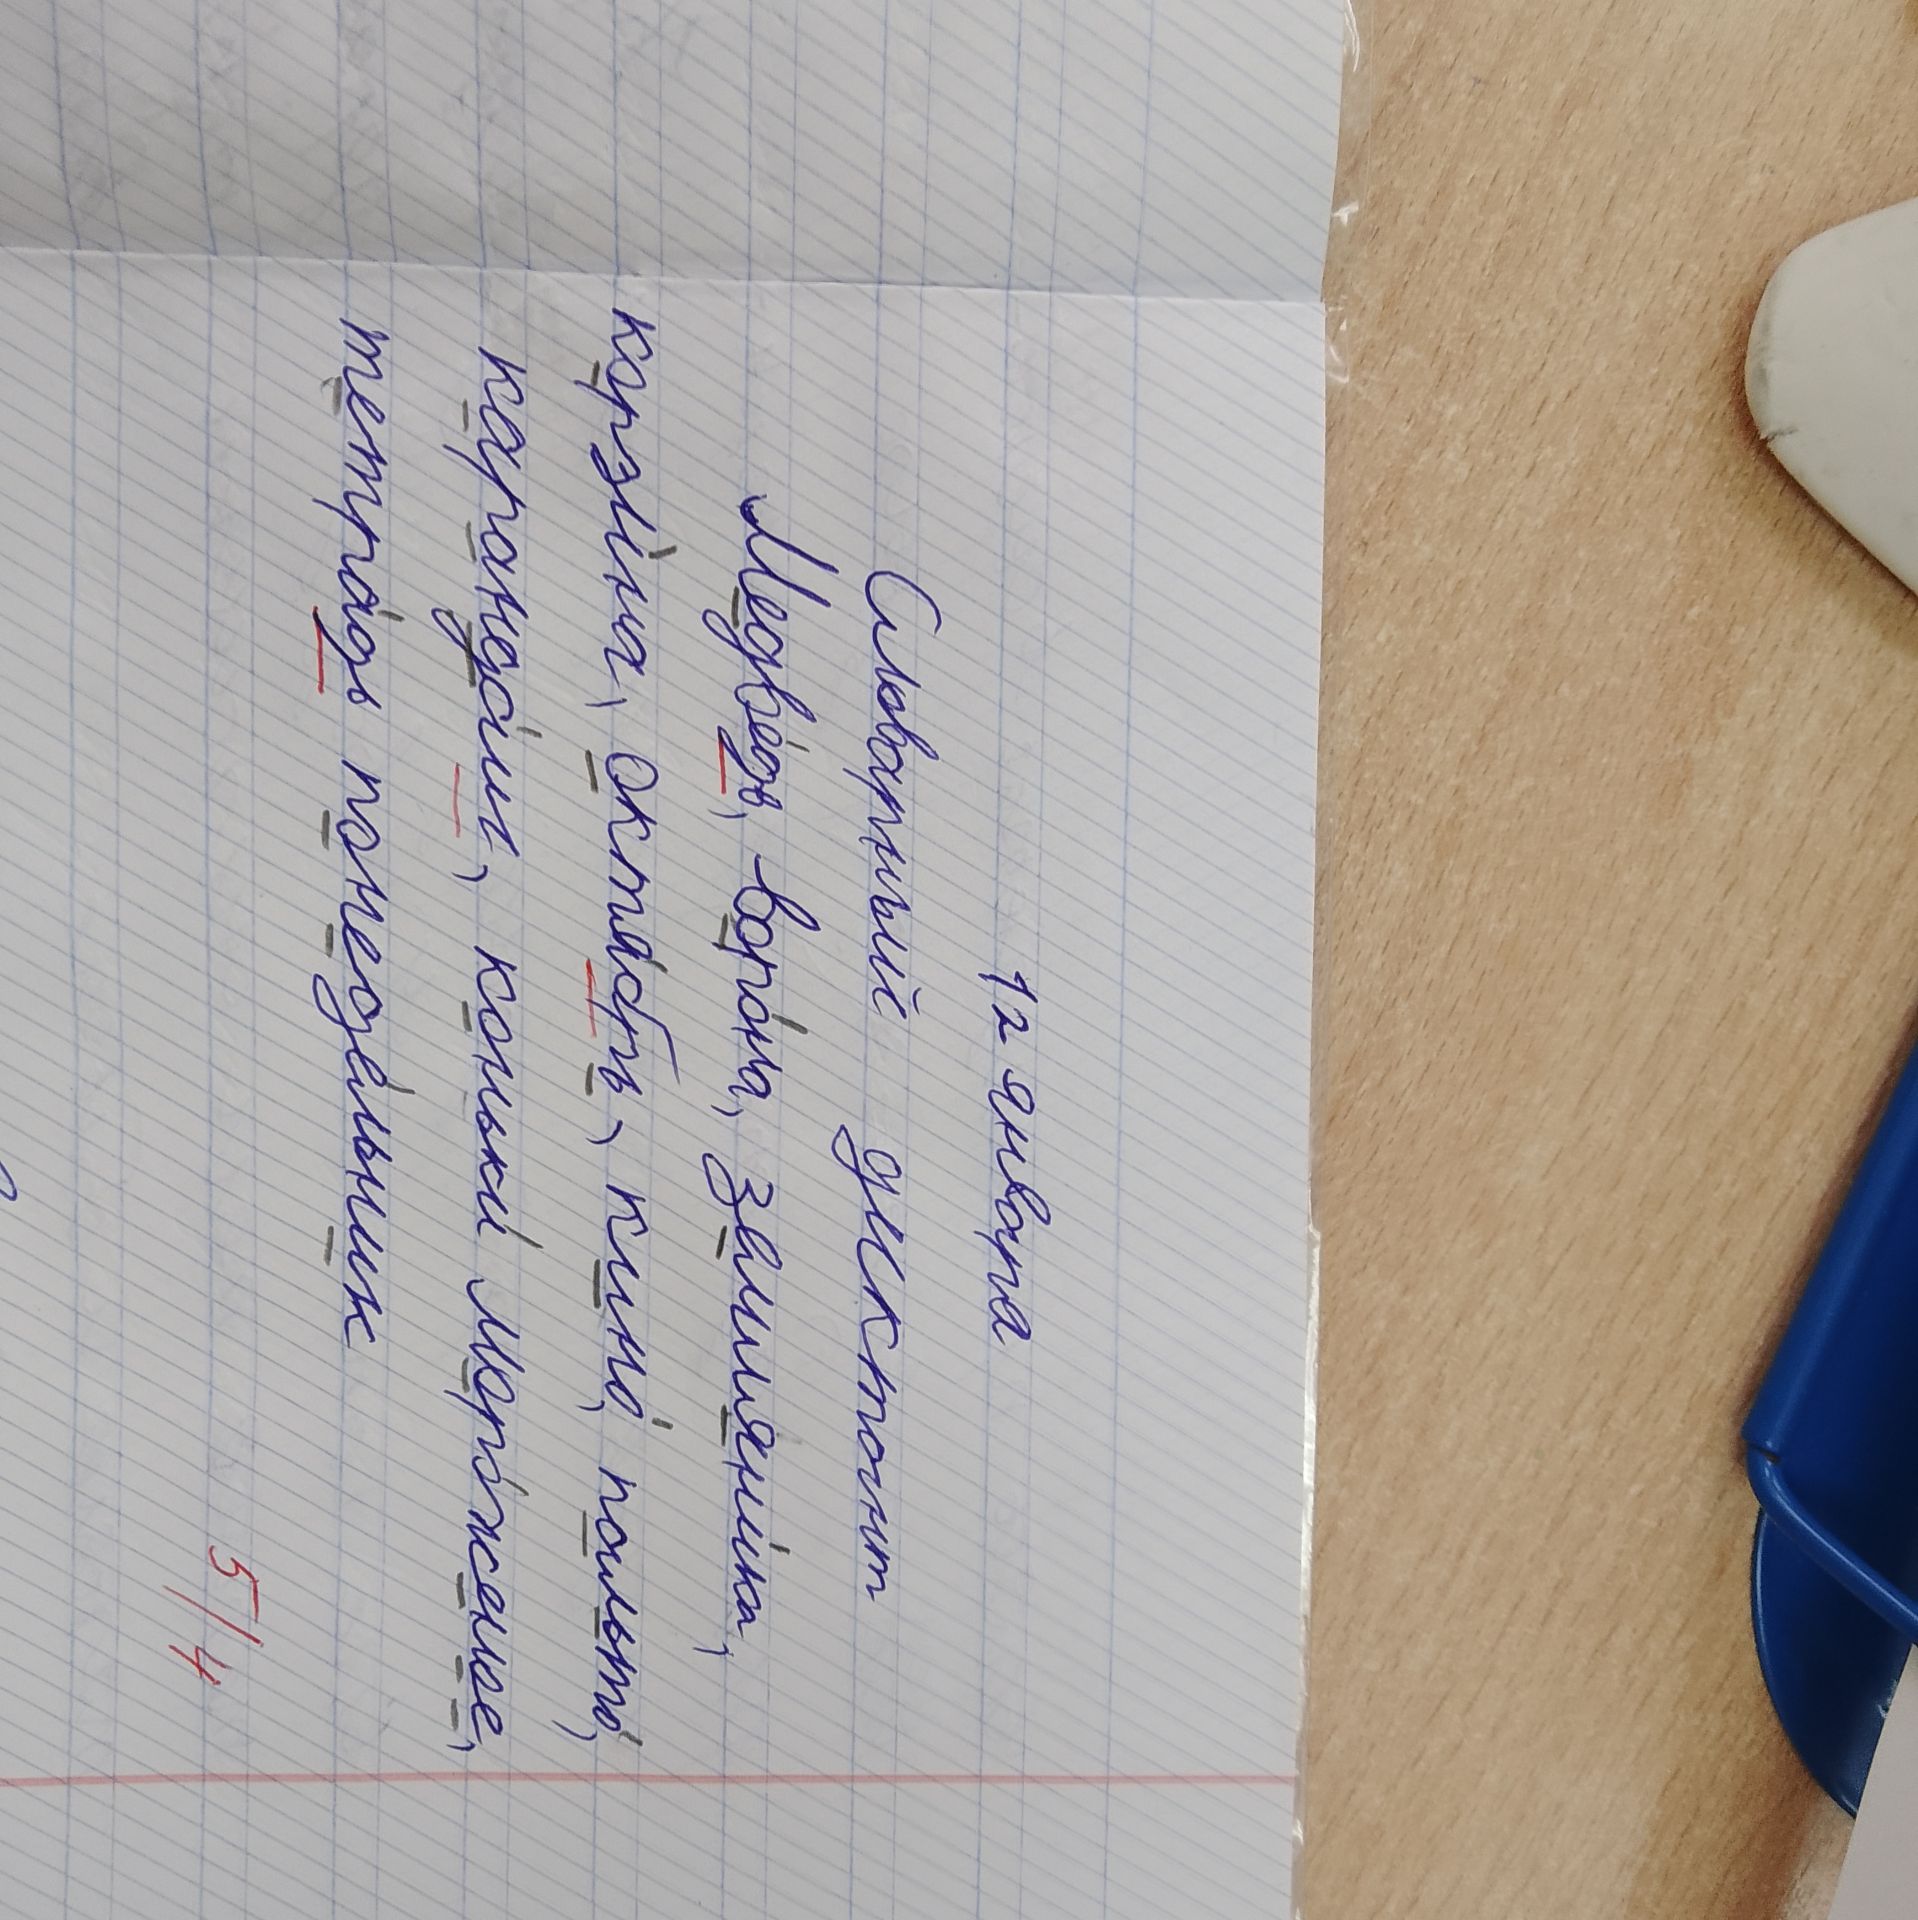 12 января
Словарный диктант
Медве́дь, воро́на, земляни́ка,
карзи́на, октя́бть, кино́, пальто́,
карандаши, коньки́ моро́женое,
тетра́дь понеде́льник
5/4